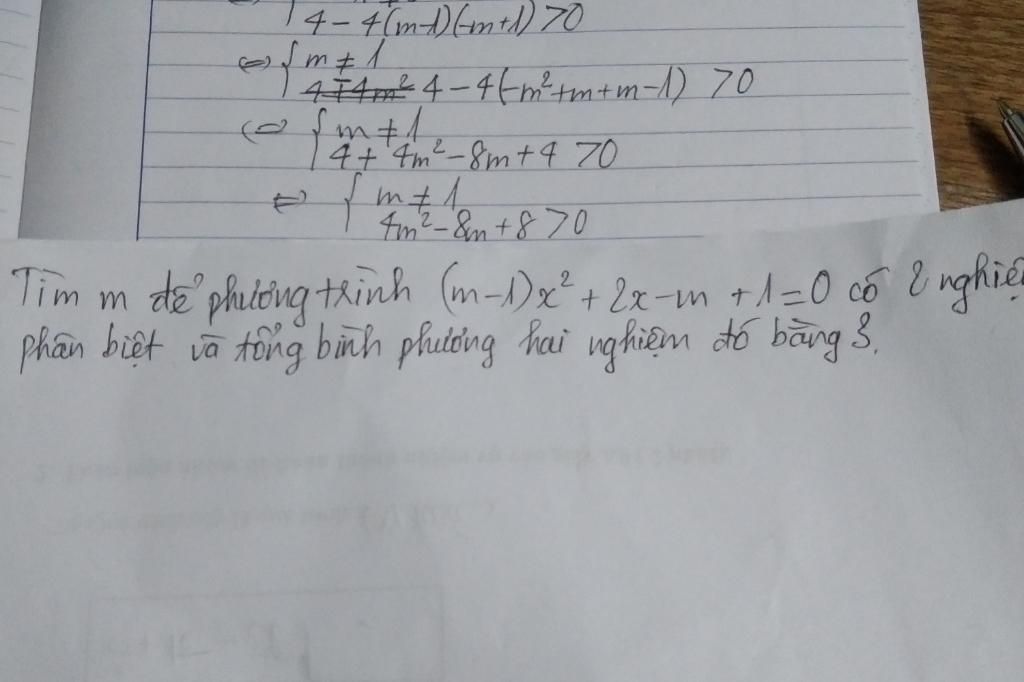 4 - 4(m-1)(-m+1) > 0
⇔ { m ≠ 1
4 - 4(-m²+m+m-1) > 0
⇔ { m ≠ 1
4 + 4m² - 8m + 4 > 0
⇔ { m ≠ 1
4m² - 8m + 8 > 0
Tìm m để phương trình (m-1)x² + 2x - m + 1 = 0 có 2 nghiệ
phân biệt và tổng bình phương hai nghiệm đó bằng 3.